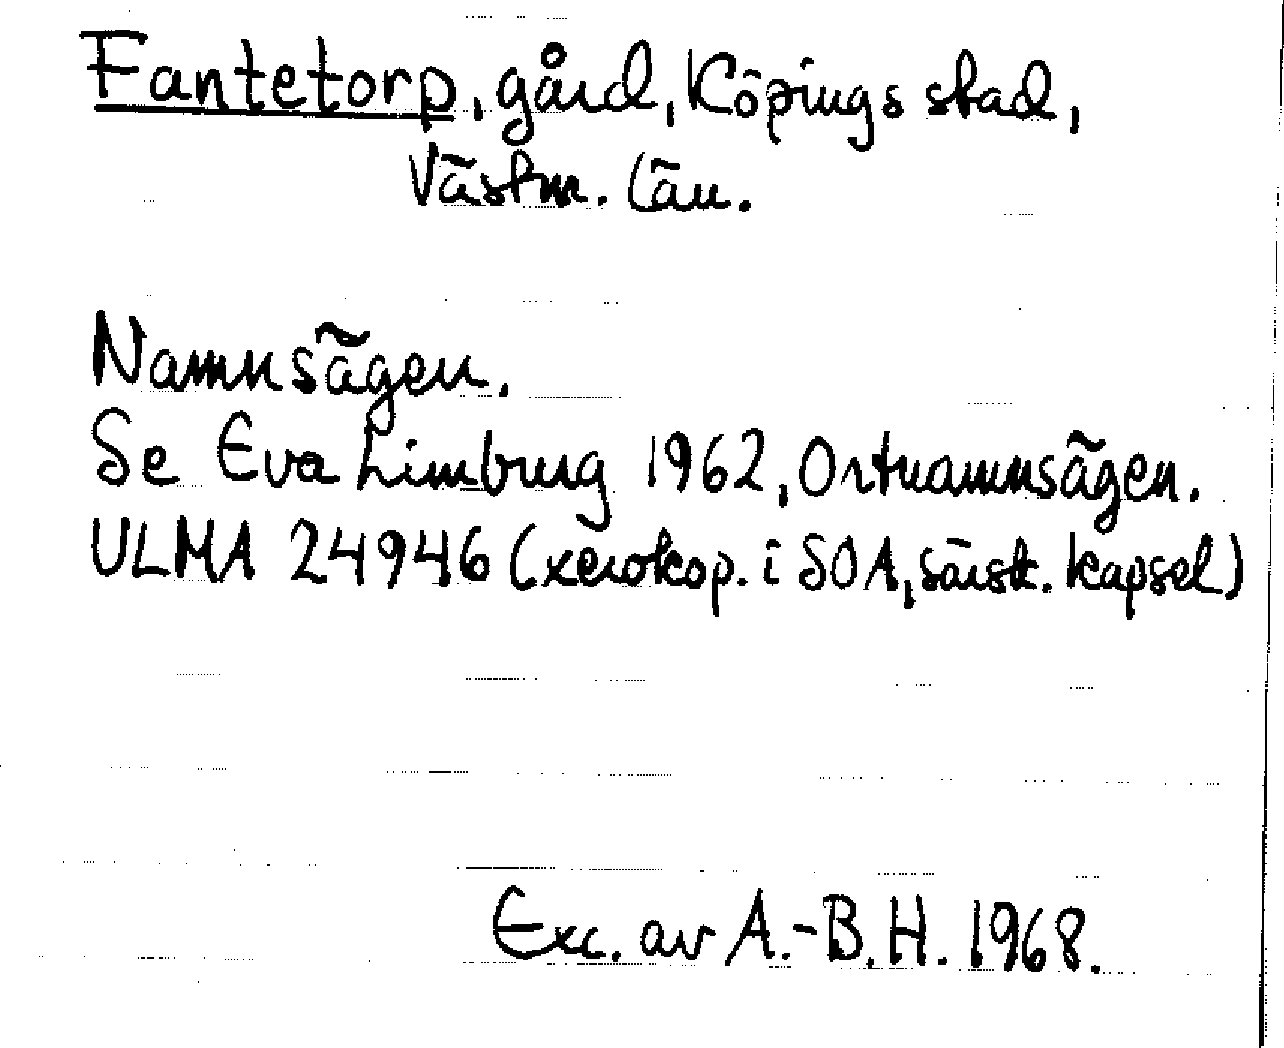 Fantetorp, gård, Köpings stad,
Västm. län.
Namnsägen.
Se Eva Limburg 1962, Ortnamnsägen.
ULMA 24946 (xerokop. i SOA, särsk. kapsel)
Exc. av A.-B.H. 1968.